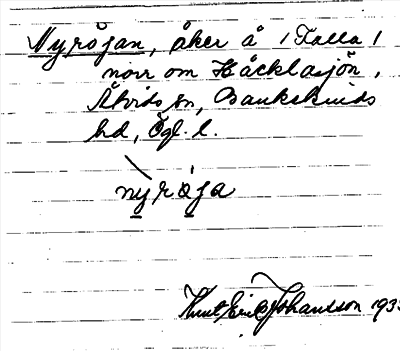 Nyröjan, åker å /Falla/
norr om Häcklasjön,
Åtvids sn, Bankekinds
hd, Ögl. l.
nyröja
Knut Erik Johansson 193